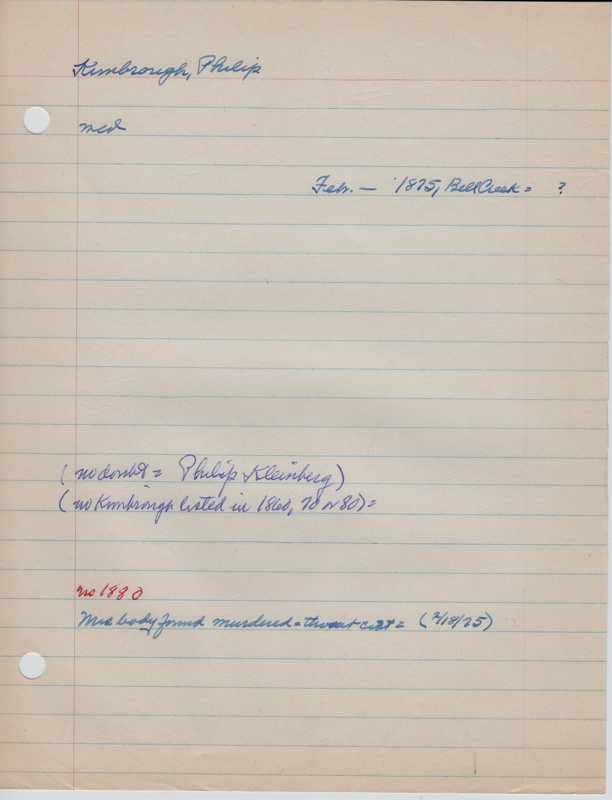 Kimbrough, Philip
med
Feb. — 1875, Bell Creek = ?
(no doubt = Philip Kleinberg)
(no Kimbrough listed in 1860, 70 or 80) =
no 1880
body found murdered = throat cut = (2/18/75)